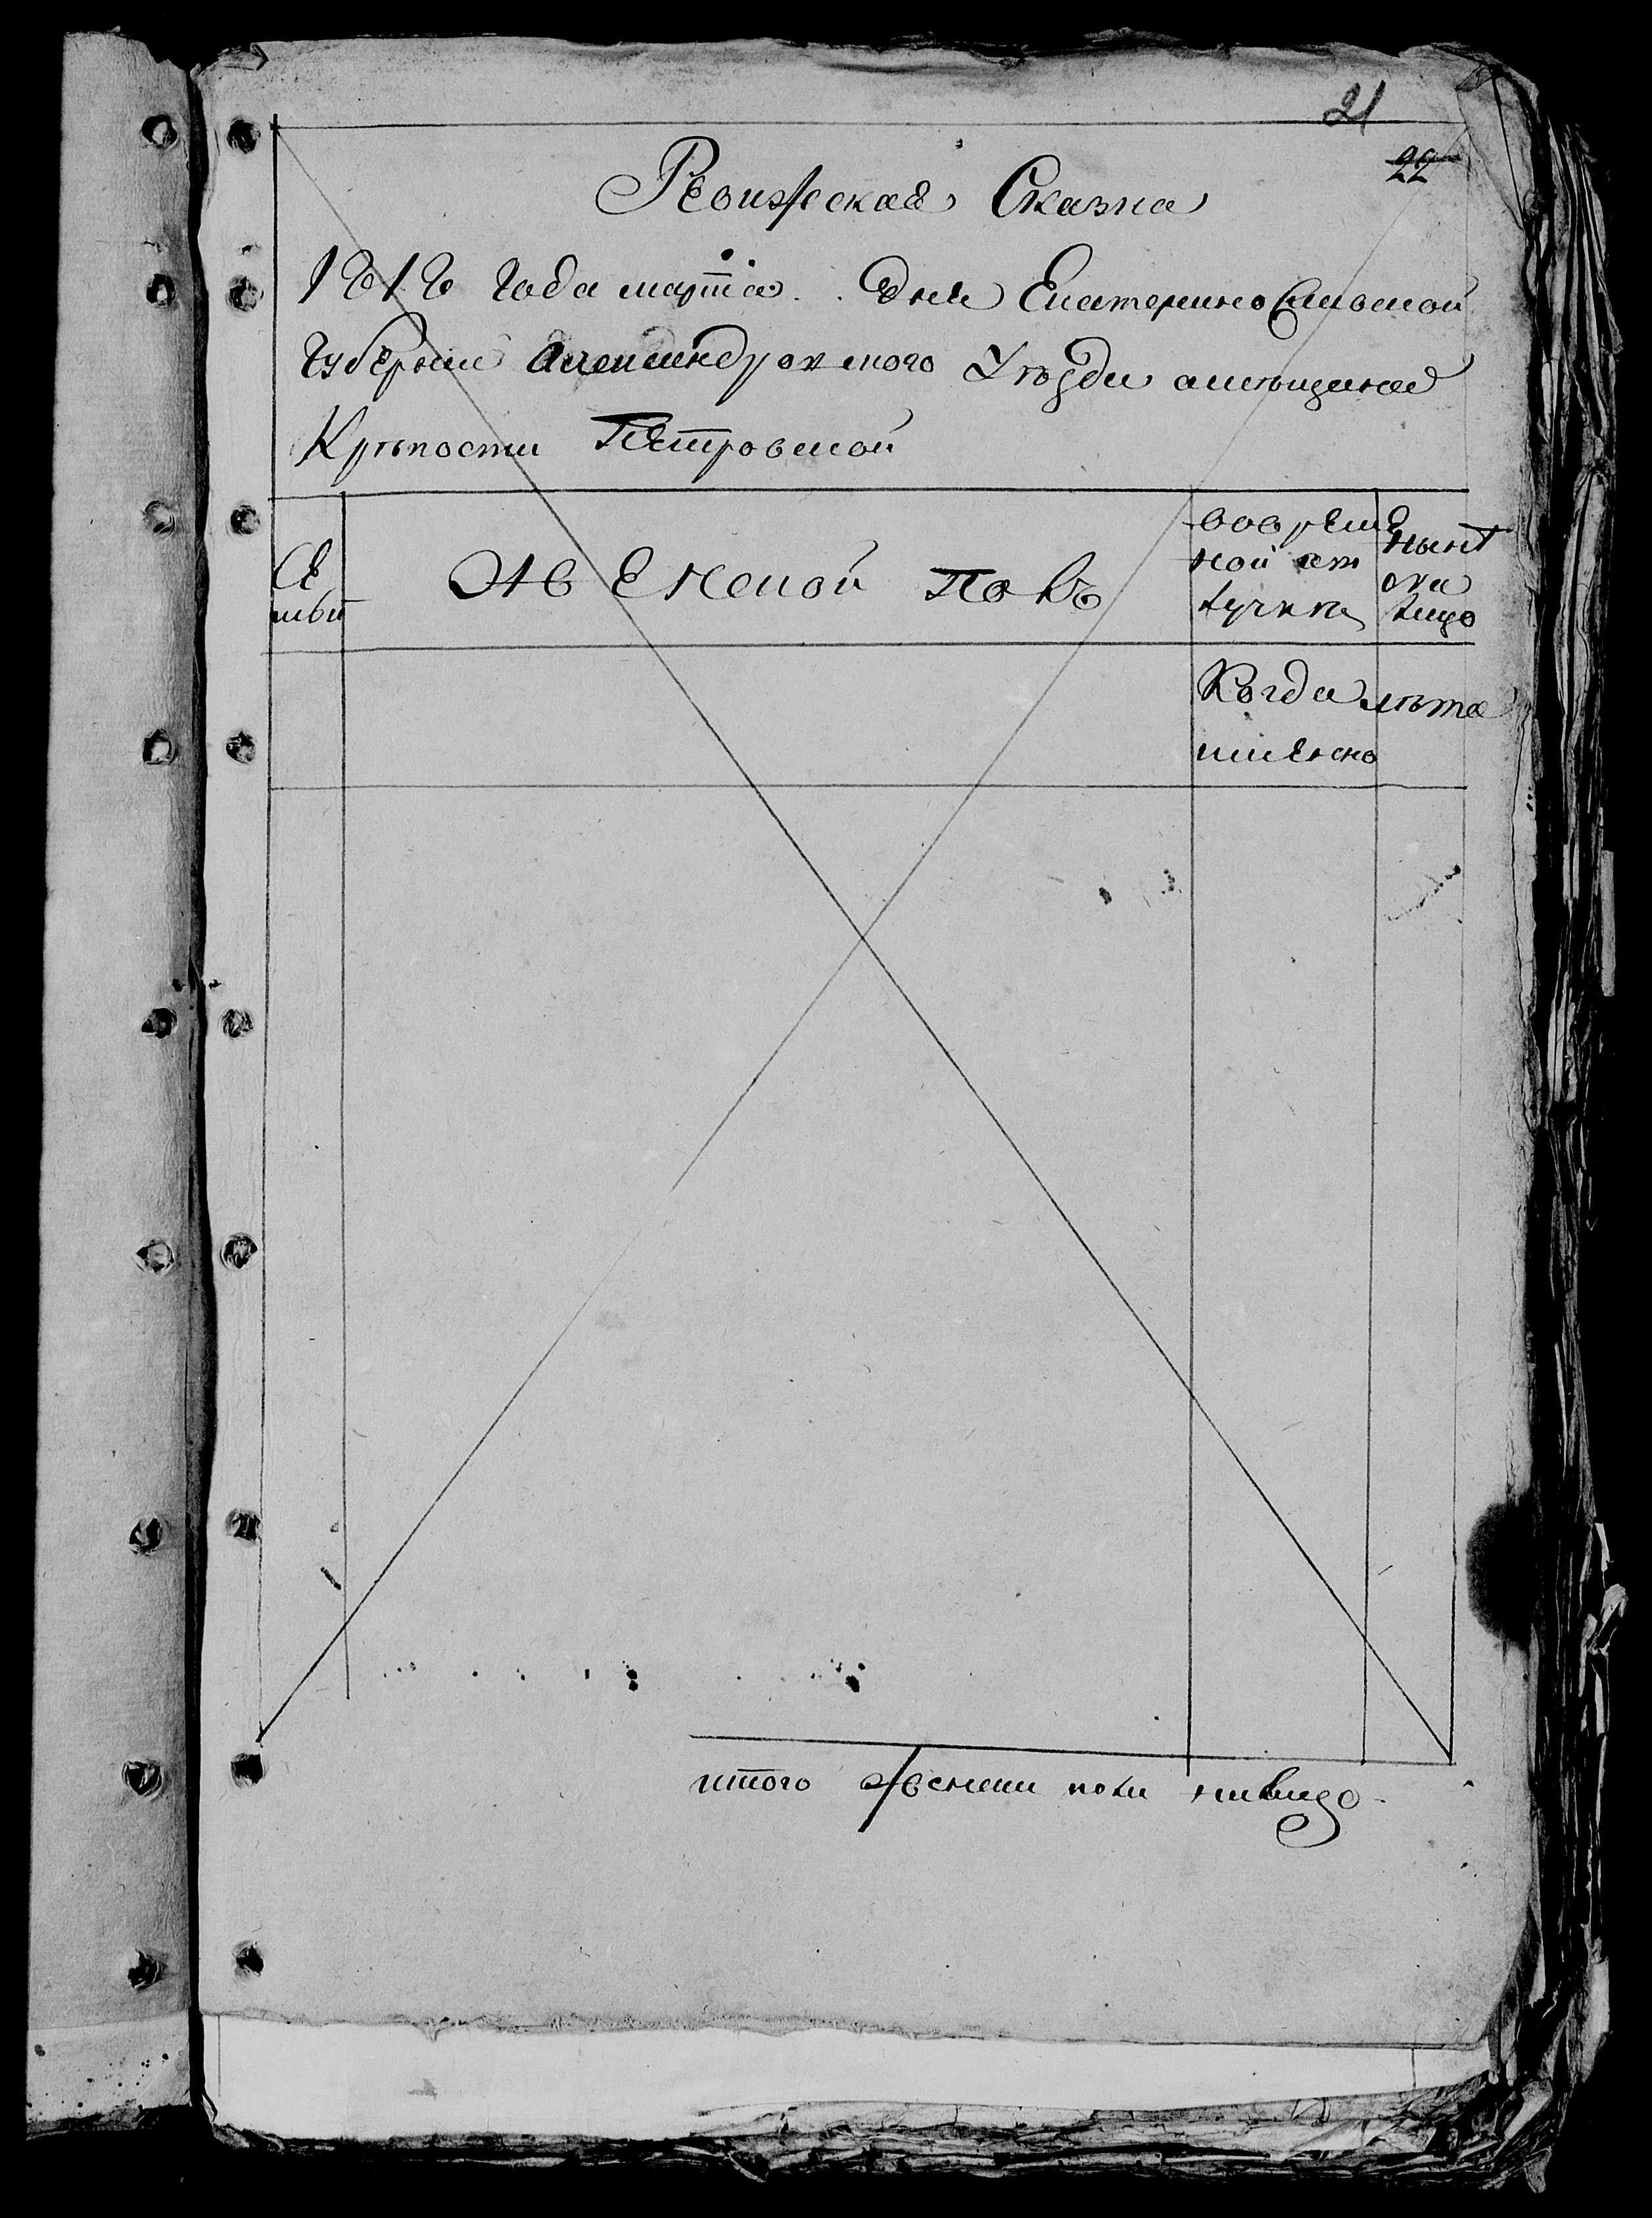 21
22
Ревизская Сказка
1816 года марта . . дня Екатеринославской
губернии Александровского уезда амещиках
Крѣпости Петровской
Се
мьи
Женской полъ
вовремен
ной от
лучке
ныне
она
лицо
Когда
лѣта
имянно
итого женска пола нилицо